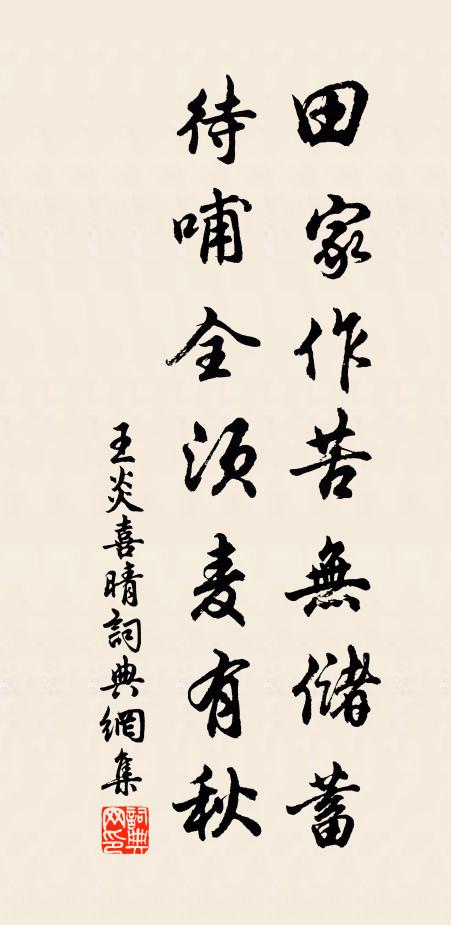 田家作苦無儲蓄
待哺全須麦有秋
王炎喜晴詞典網集
詞典網印